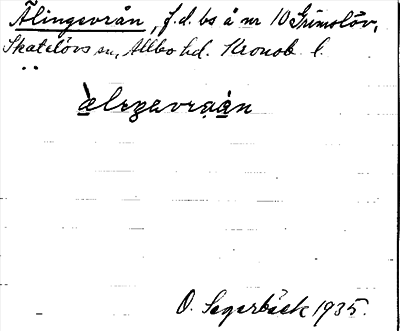 Älingsvrån, f.d. bs å nr 10 Grimslöv,
Skatelövs sn, Allbo hd. Kronob l.
O. Segerbäck 1935.